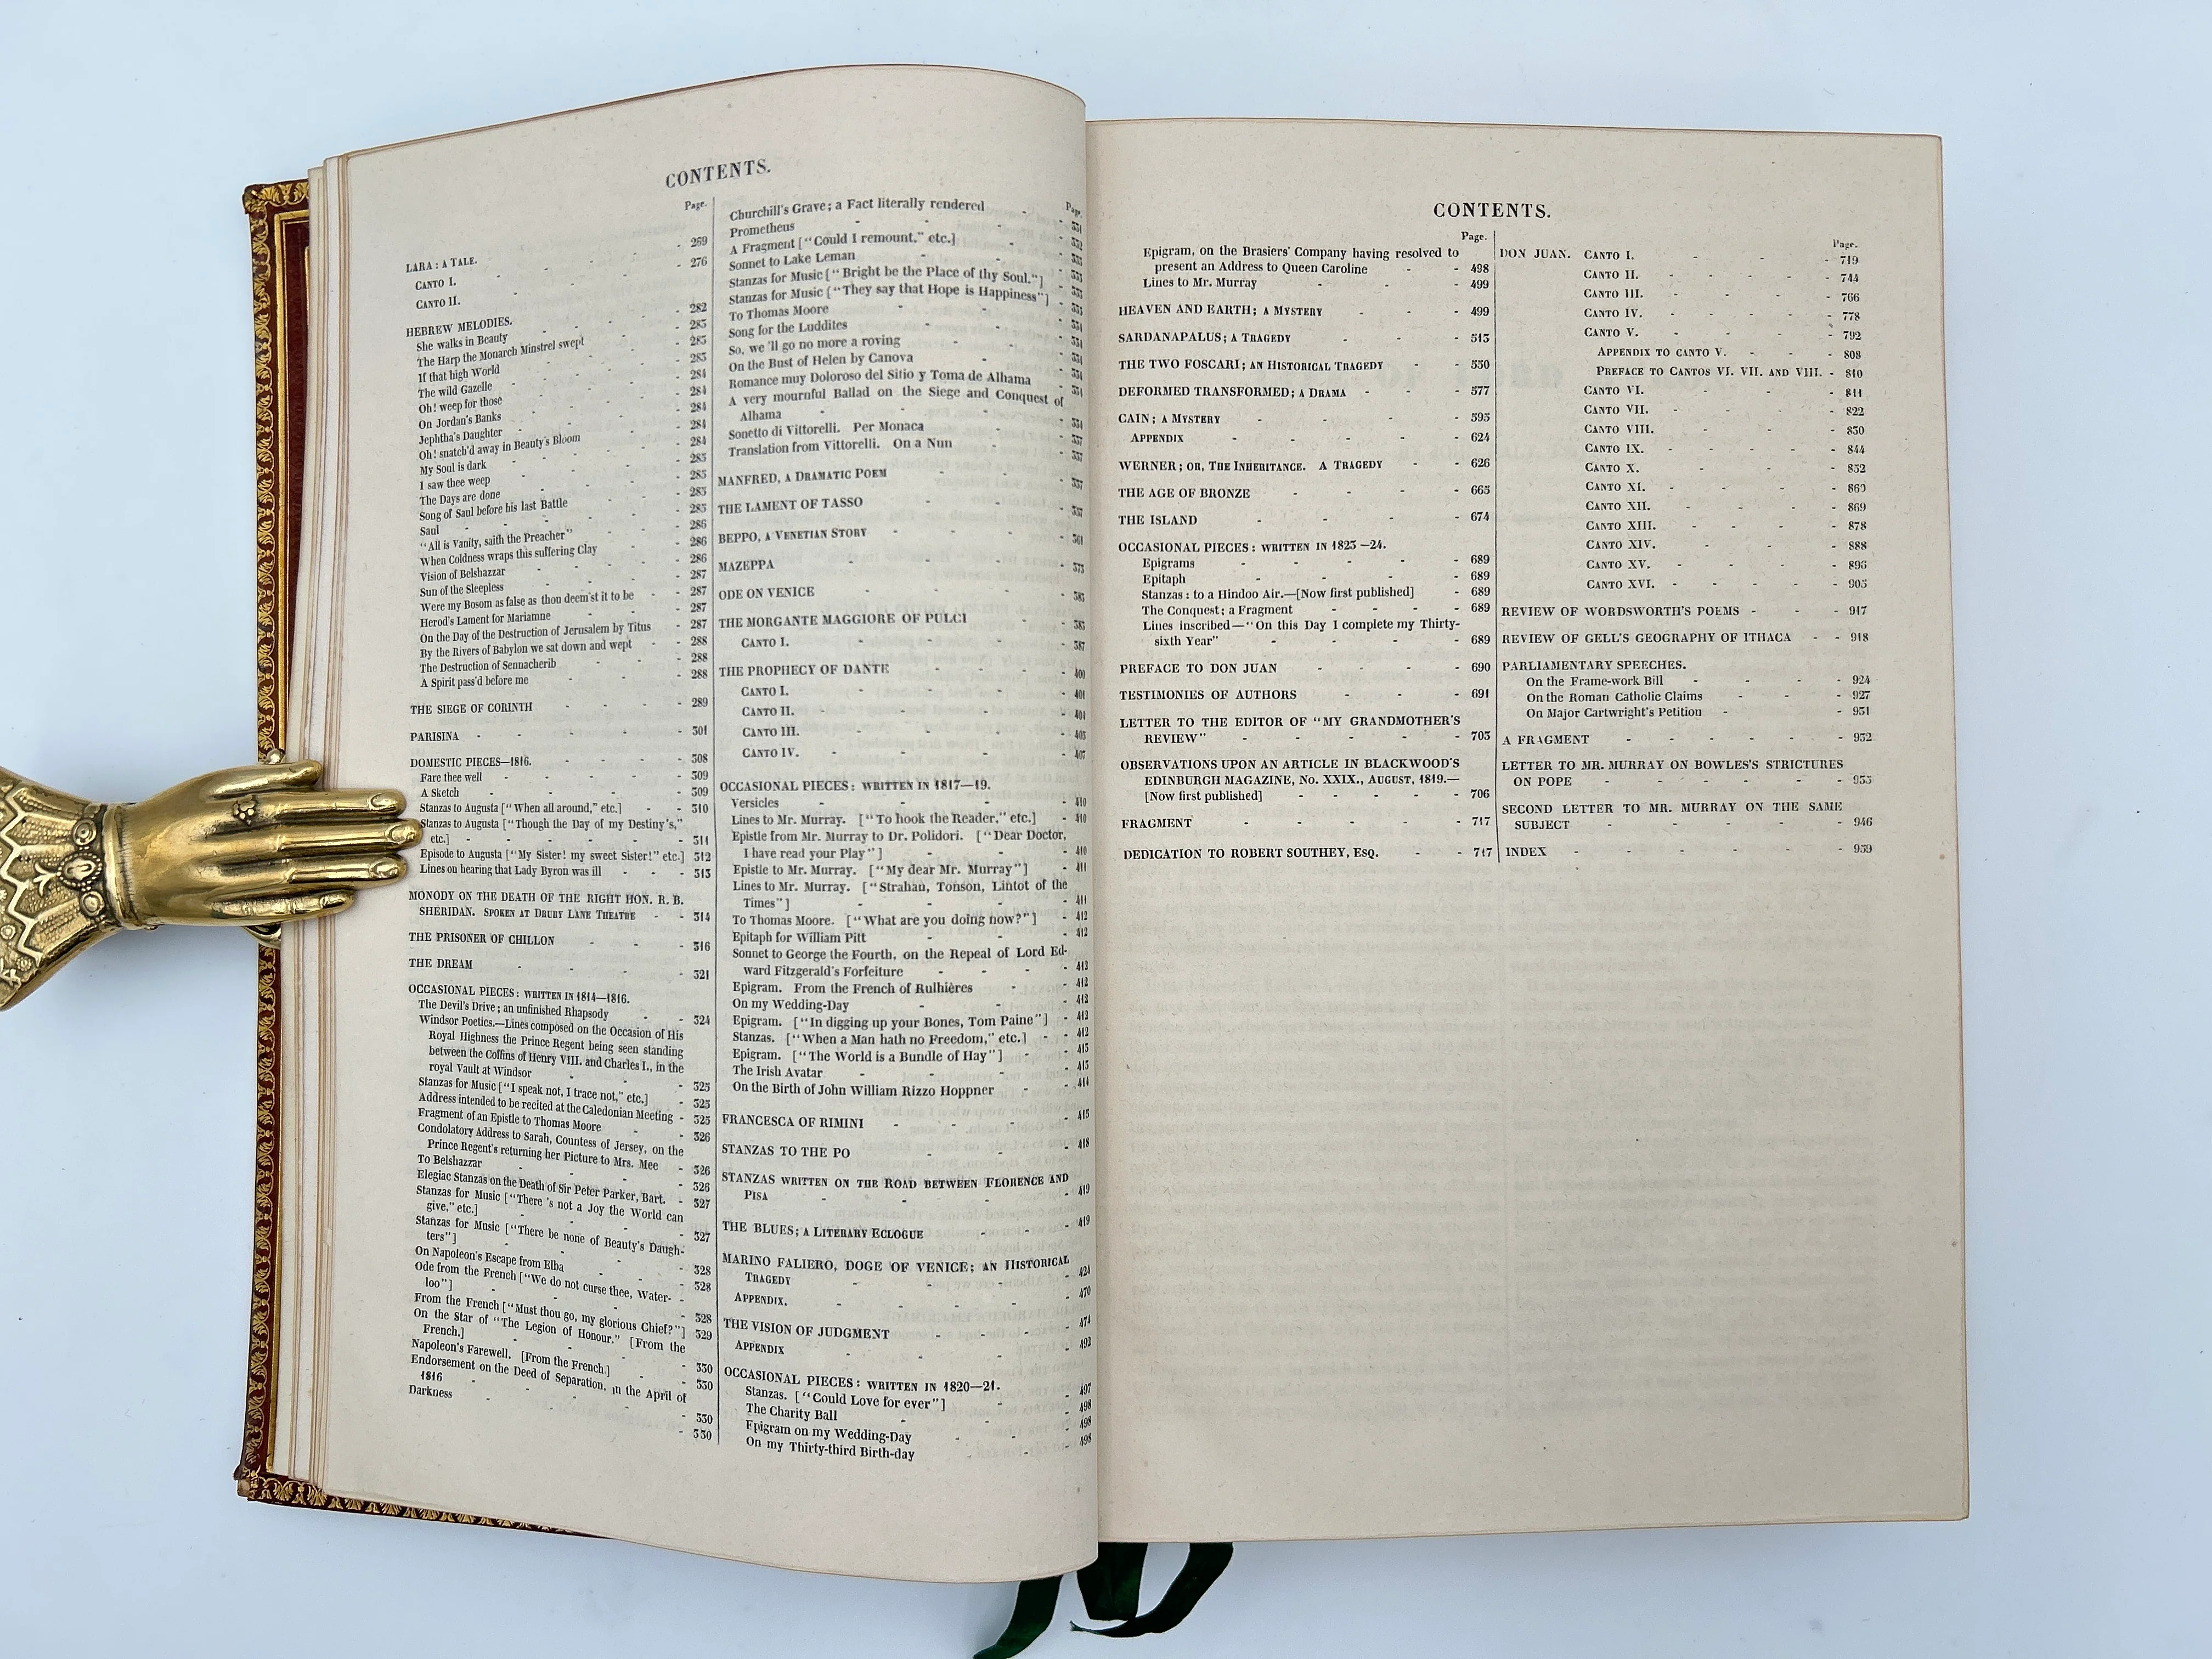 CONTENTS.
Page.
LARA: A TALE.
CANTO I. - - - - 269
CANTO II. - - - - 276
HEBREW MELODIES. - - - 282
She walks in Beauty - - - 283
The Harp the Monarch Minstrel swept - 283
If that high World - - - 283
The wild Gazelle - - - 284
Oh! weep for those - - - 284
On Jordan's Banks - - - 284
Jephtha's Daughter - - - 284
Oh! snatch'd away in Beauty's Bloom - 284
My Soul is dark - - - 285
I saw thee weep - - - 285
The Days are done - - - 285
Song of Saul before his last Battle - 285
Saul - - - - 286
"All is Vanity, saith the Preacher" - 286
When Coldness wraps this suffering Clay - 286
Vision of Belshazzar - - - 287
Sun of the Sleepless - - - 287
Were my Bosom as false as thou deem'st it to be - 287
Herod's Lament for Mariamne - - 287
On the Day of the Destruction of Jerusalem by Titus - 288
By the Rivers of Babylon we sat down and wept - 288
The Destruction of Sennacherib - - 288
A Spirit pass'd before me
THE SIEGE OF CORINTH - - - 289
PARISINA - - - - 301
DOMESTIC PIECES—1816. - - - 308
Fare thee well - - - - 309
A Sketch - - - - 309
Stanzas to Augusta ["When all around," etc.] - - 310
Stanzas to Augusta ["Though the Day of my Destiny's,"
etc.] - - - - 311
Episode to Augusta ["My Sister! my sweet Sister!" etc.] 312
Lines on hearing that Lady Byron was ill - - 313
MONODY ON THE DEATH OF THE RIGHT HON. R. B.
SHERIDAN. SPOKEN AT DRURY LANE THEATRE - - 314
THE PRISONER OF CHILLON - - - 316
THE DREAM - - - - 321
OCCASIONAL PIECES: WRITTEN IN 1814—1816.
The Devil's Drive; an unfinished Rhapsody - - 324
Windsor Poetics.—Lines composed on the Occasion of His
Royal Highness the Prince Regent being seen standing
between the Coffins of Henry VIII. and Charles I., in the
royal Vault at Windsor - - - 325
Stanzas for Music ["I speak not, I trace not," etc.] - 325
Address intended to be recited at the Caledonian Meeting - 325
Fragment of an Epistle to Thomas Moore - - 326
Condolatory Address to Sarah, Countess of Jersey, on the
Prince Regent's returning her Picture to Mrs. Mee - 326
To Belshazzar - - - - 326
Elegiac Stanzas on the Death of Sir Peter Parker, Bart. - 327
Stanzas for Music ["There 's not a Joy the World can
give," etc.] - - - - 327
Stanzas for Music ["There be none of Beauty's Daugh-
ters"] - - - - 328
On Napoleon's Escape from Elba - - 328
Ode from the French ["We do not curse thee, Water-
loo"] - - - - 328
From the French ["Must thou go, my glorious Chief?"] 329
On the Star of "The Legion of Honour." [From the
French.] - - - - 330
Napoleon's Farewell. [From the French.] - - 330
Endorsement on the Deed of Separation, in the April of
1816 - - - - 330
Darkness - - - - 330
Page.
Churchill's Grave; a Fact literally rendered - - 331
Prometheus - - - 332
A Fragment ["Could I remount," etc.] - - 333
Sonnet to Lake Leman - - - 333
Stanzas for Music ["Bright be the Place of thy Soul."] - 333
Stanzas for Music ["They say that Hope is Happiness"] - 333
To Thomas Moore - - - 334
Song for the Luddites - - - 334
So, we 'll go no more a roving - - 334
On the Bust of Helen by Canova - - 334
Romance muy Doloroso del Sitio y Toma de Alhama
A very mournful Ballad on the Siege and Conquest of
Alhama - - - - 334
Sonetto di Vittorelli. Per Monaca - - 337
Translation from Vittorelli. On a Nun - - 337
MANFRED, A DRAMATIC POEM - - - 337
THE LAMENT OF TASSO - - -
BEPPO, A VENETIAN STORY - - - 361
MAZEPPA - - - - 373
ODE ON VENICE - - - - 383
THE MORGANTE MAGGIORE OF PULCI - - 385
CANTO I. - - - - 387
THE PROPHECY OF DANTE - - - 400
CANTO I. - - - - 401
CANTO II. - - - - 404
CANTO III. - - - - 405
CANTO IV. - - - - 407
OCCASIONAL PIECES: WRITTEN IN 1817—19.
Versicles - - - - 410
Lines to Mr. Murray. ["To hook the Reader," etc.] - 410
Epistle from Mr. Murray to Dr. Polidori. ["Dear Doctor,
I have read your Play"] - - - 410
Epistle to Mr. Murray. ["My dear Mr. Murray"] - 411
Lines to Mr. Murray. ["Strahan, Tonson, Lintot of the
Times"] - - - - 411
To Thomas Moore. ["What are you doing now?"] - 412
Epitaph for William Pitt - - - 412
Sonnet to George the Fourth, on the Repeal of Lord Ed-
ward Fitzgerald's Forfeiture - - - 412
Epigram. From the French of Rulhières - - 412
On my Wedding-Day - - - 412
Epigram. ["In digging up your Bones, Tom Paine"] - 412
Stanzas. ["When a Man hath no Freedom," etc.] - - 412
Epigram. ["The World is a Bundle of Hay"] - - 413
The Irish Avatar - - - - 413
On the Birth of John William Rizzo Hoppner - - 414
FRANCESCA OF RIMINI - - - - 415
STANZAS TO THE PO - - - 418
STANZAS WRITTEN ON THE ROAD BETWEEN FLORENCE AND
PISA - - - - 419
THE BLUES; A LITERARY ECLOGUE - - - 419
MARINO FALIERO, DOGE OF VENICE; AN HISTORICAL
TRAGEDY - - - - 424
APPENDIX. - - - - 470
THE VISION OF JUDGMENT - - - 474
APPENDIX - - - - 492
OCCASIONAL PIECES: WRITTEN IN 1820—21.
Stanzas. ["Could Love for ever"] - - 497
The Charity Ball - - - 498
Epigram on my Wedding-Day - - - 498
On my Thirty-third Birth-day - - 498
CONTENTS.
Page.
Epigram, on the Brasiers' Company having resolved to
present an Address to Queen Caroline - - 498
Lines to Mr. Murray - - - 499
HEAVEN AND EARTH; A MYSTERY - - - 499
SARDANAPALUS; A TRAGEDY - - - 513
THE TWO FOSCARI; AN HISTORICAL TRAGEDY - - 550
DEFORMED TRANSFORMED; A DRAMA - - - 577
CAIN; A MYSTERY - - - - 595
APPENDIX - - - - 624
WERNER; OR, THE INHERITANCE. A TRAGEDY - - 626
THE AGE OF BRONZE - - - - 665
THE ISLAND - - - - 674
OCCASIONAL PIECES: WRITTEN IN 1823—24.
Epigrams - - - - 689
Epitaph - - - - 689
Stanzas: to a Hindoo Air.—[Now first published] - 689
The Conquest; a Fragment - - - 689
Lines inscribed—"On this Day I complete my Thirty-
sixth Year" - - - - 689
PREFACE TO DON JUAN - - - - 690
TESTIMONIES OF AUTHORS - - - 691
LETTER TO THE EDITOR OF "MY GRANDMOTHER'S
REVIEW" - - - - 703
OBSERVATIONS UPON AN ARTICLE IN BLACKWOOD'S
EDINBURGH MAGAZINE, No. XXIX., AUGUST, 1819.—
[Now first published] - - - - 706
FRAGMENT - - - - 717
DEDICATION TO ROBERT SOUTHEY, ESQ. - - 717
Page.
DON JUAN. CANTO I. - - - 719
CANTO II. - - - - 744
CANTO III. - - - - 766
CANTO IV. - - - - 778
CANTO V. - - - - 792
APPENDIX TO CANTO V. - - - 808
PREFACE TO CANTOS VI. VII. AND VIII. - 810
CANTO VI. - - - - 811
CANTO VII. - - - - 822
CANTO VIII. - - - - 830
CANTO IX. - - - - 844
CANTO X. - - - 852
CANTO XI. - - - - 860
CANTO XII. - - - - 869
CANTO XIII. - - - - 878
CANTO XIV. - - - - 888
CANTO XV. - - - - 896
CANTO XVI. - - - - 905
REVIEW OF WORDSWORTH'S POEMS - - - 917
REVIEW OF GELL'S GEOGRAPHY OF ITHACA - - 918
PARLIAMENTARY SPEECHES.
On the Frame-work Bill - - - - 924
On the Roman Catholic Claims - - - 927
On Major Cartwright's Petition - - - 931
A FRAGMENT - - - - 932
LETTER TO MR. MURRAY ON BOWLES'S STRICTURES
ON POPE - - - - 935
SECOND LETTER TO MR. MURRAY ON THE SAME
SUBJECT - - - - 946
INDEX - - - - 959